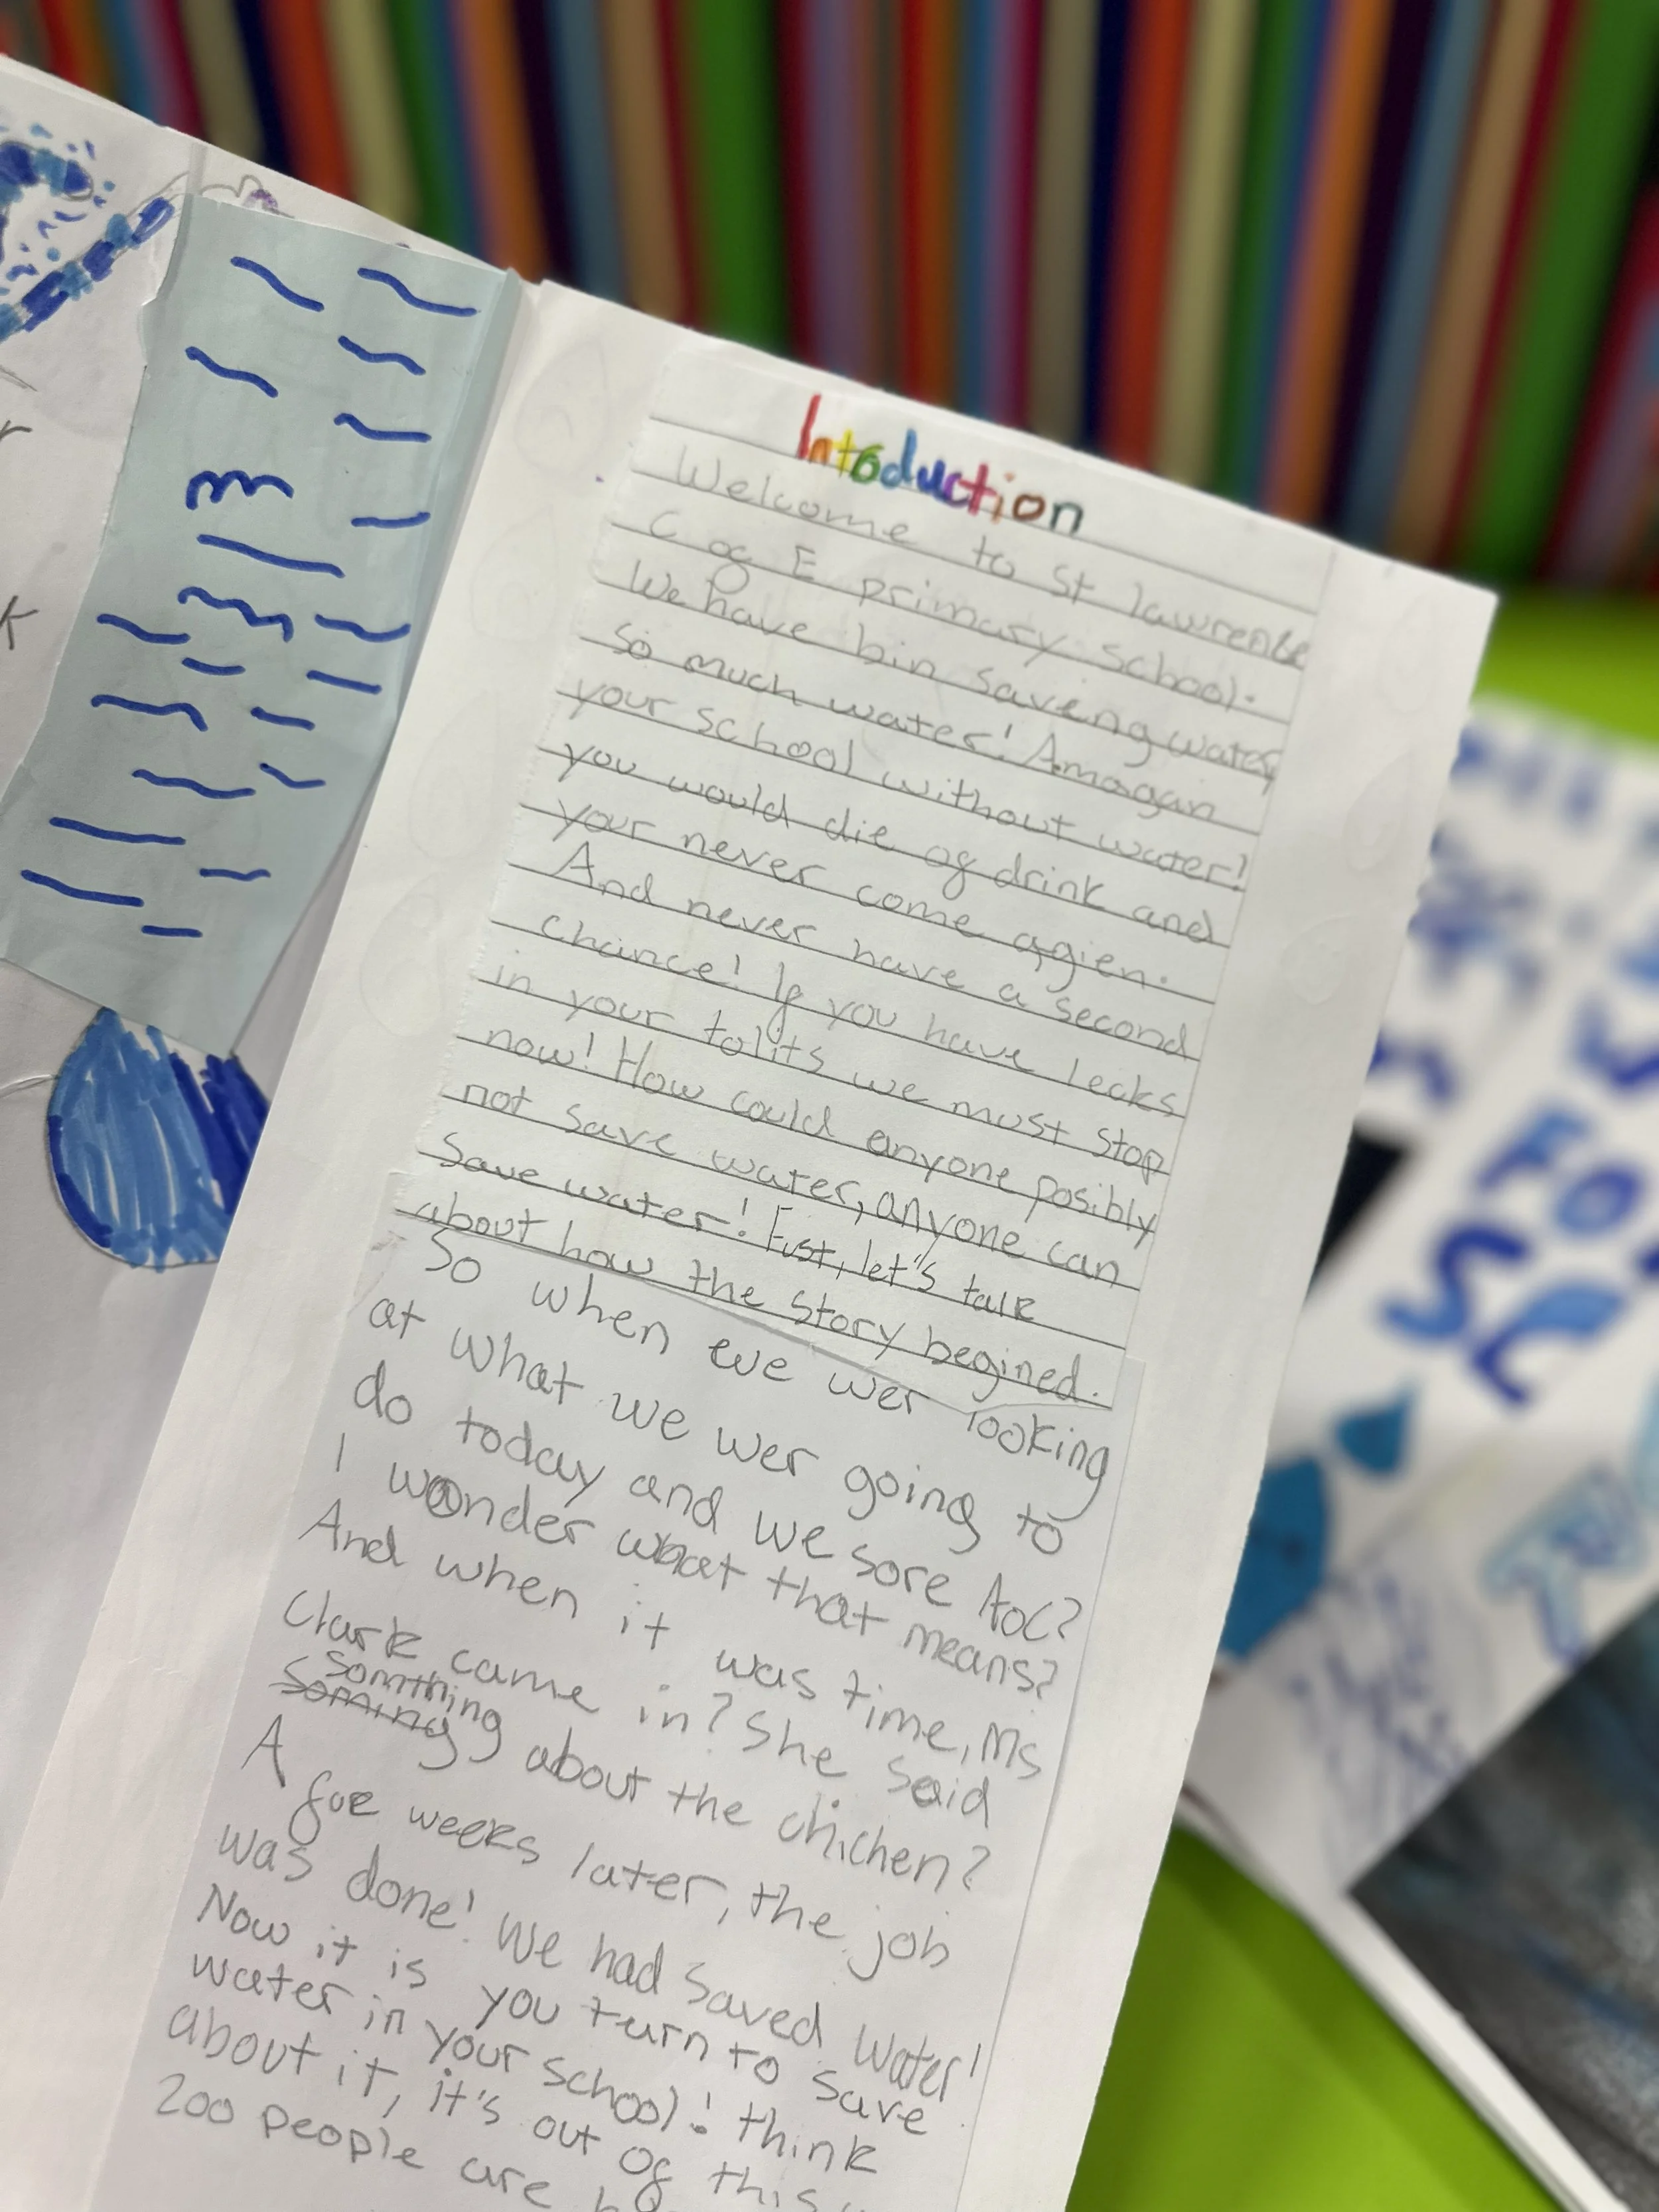 Intoduction
Welcome to St lawrense
C og E primary school.
We have bin saveng water,
So much water! Amagan
your school without water!
you would die og drink and
your never come agien.
And never have a second
chance! Ig you have lecks
in your tolits we must stop
now! How could anyone posibly
not save water, anyone can
save water! First, let's talk
about how the story begined.
So when eve wer looking
at what we wer going to
do today and we sore AoC?
I wonder what that means?
And when it was time, Ms
Clark came in? She said
somthing
soming about the chichen?
A gue weeks later, the job
was done! We had saved water!
Now it is you turn to save
water in your school! think
about it, it's out og this
200 people are
FO
SC